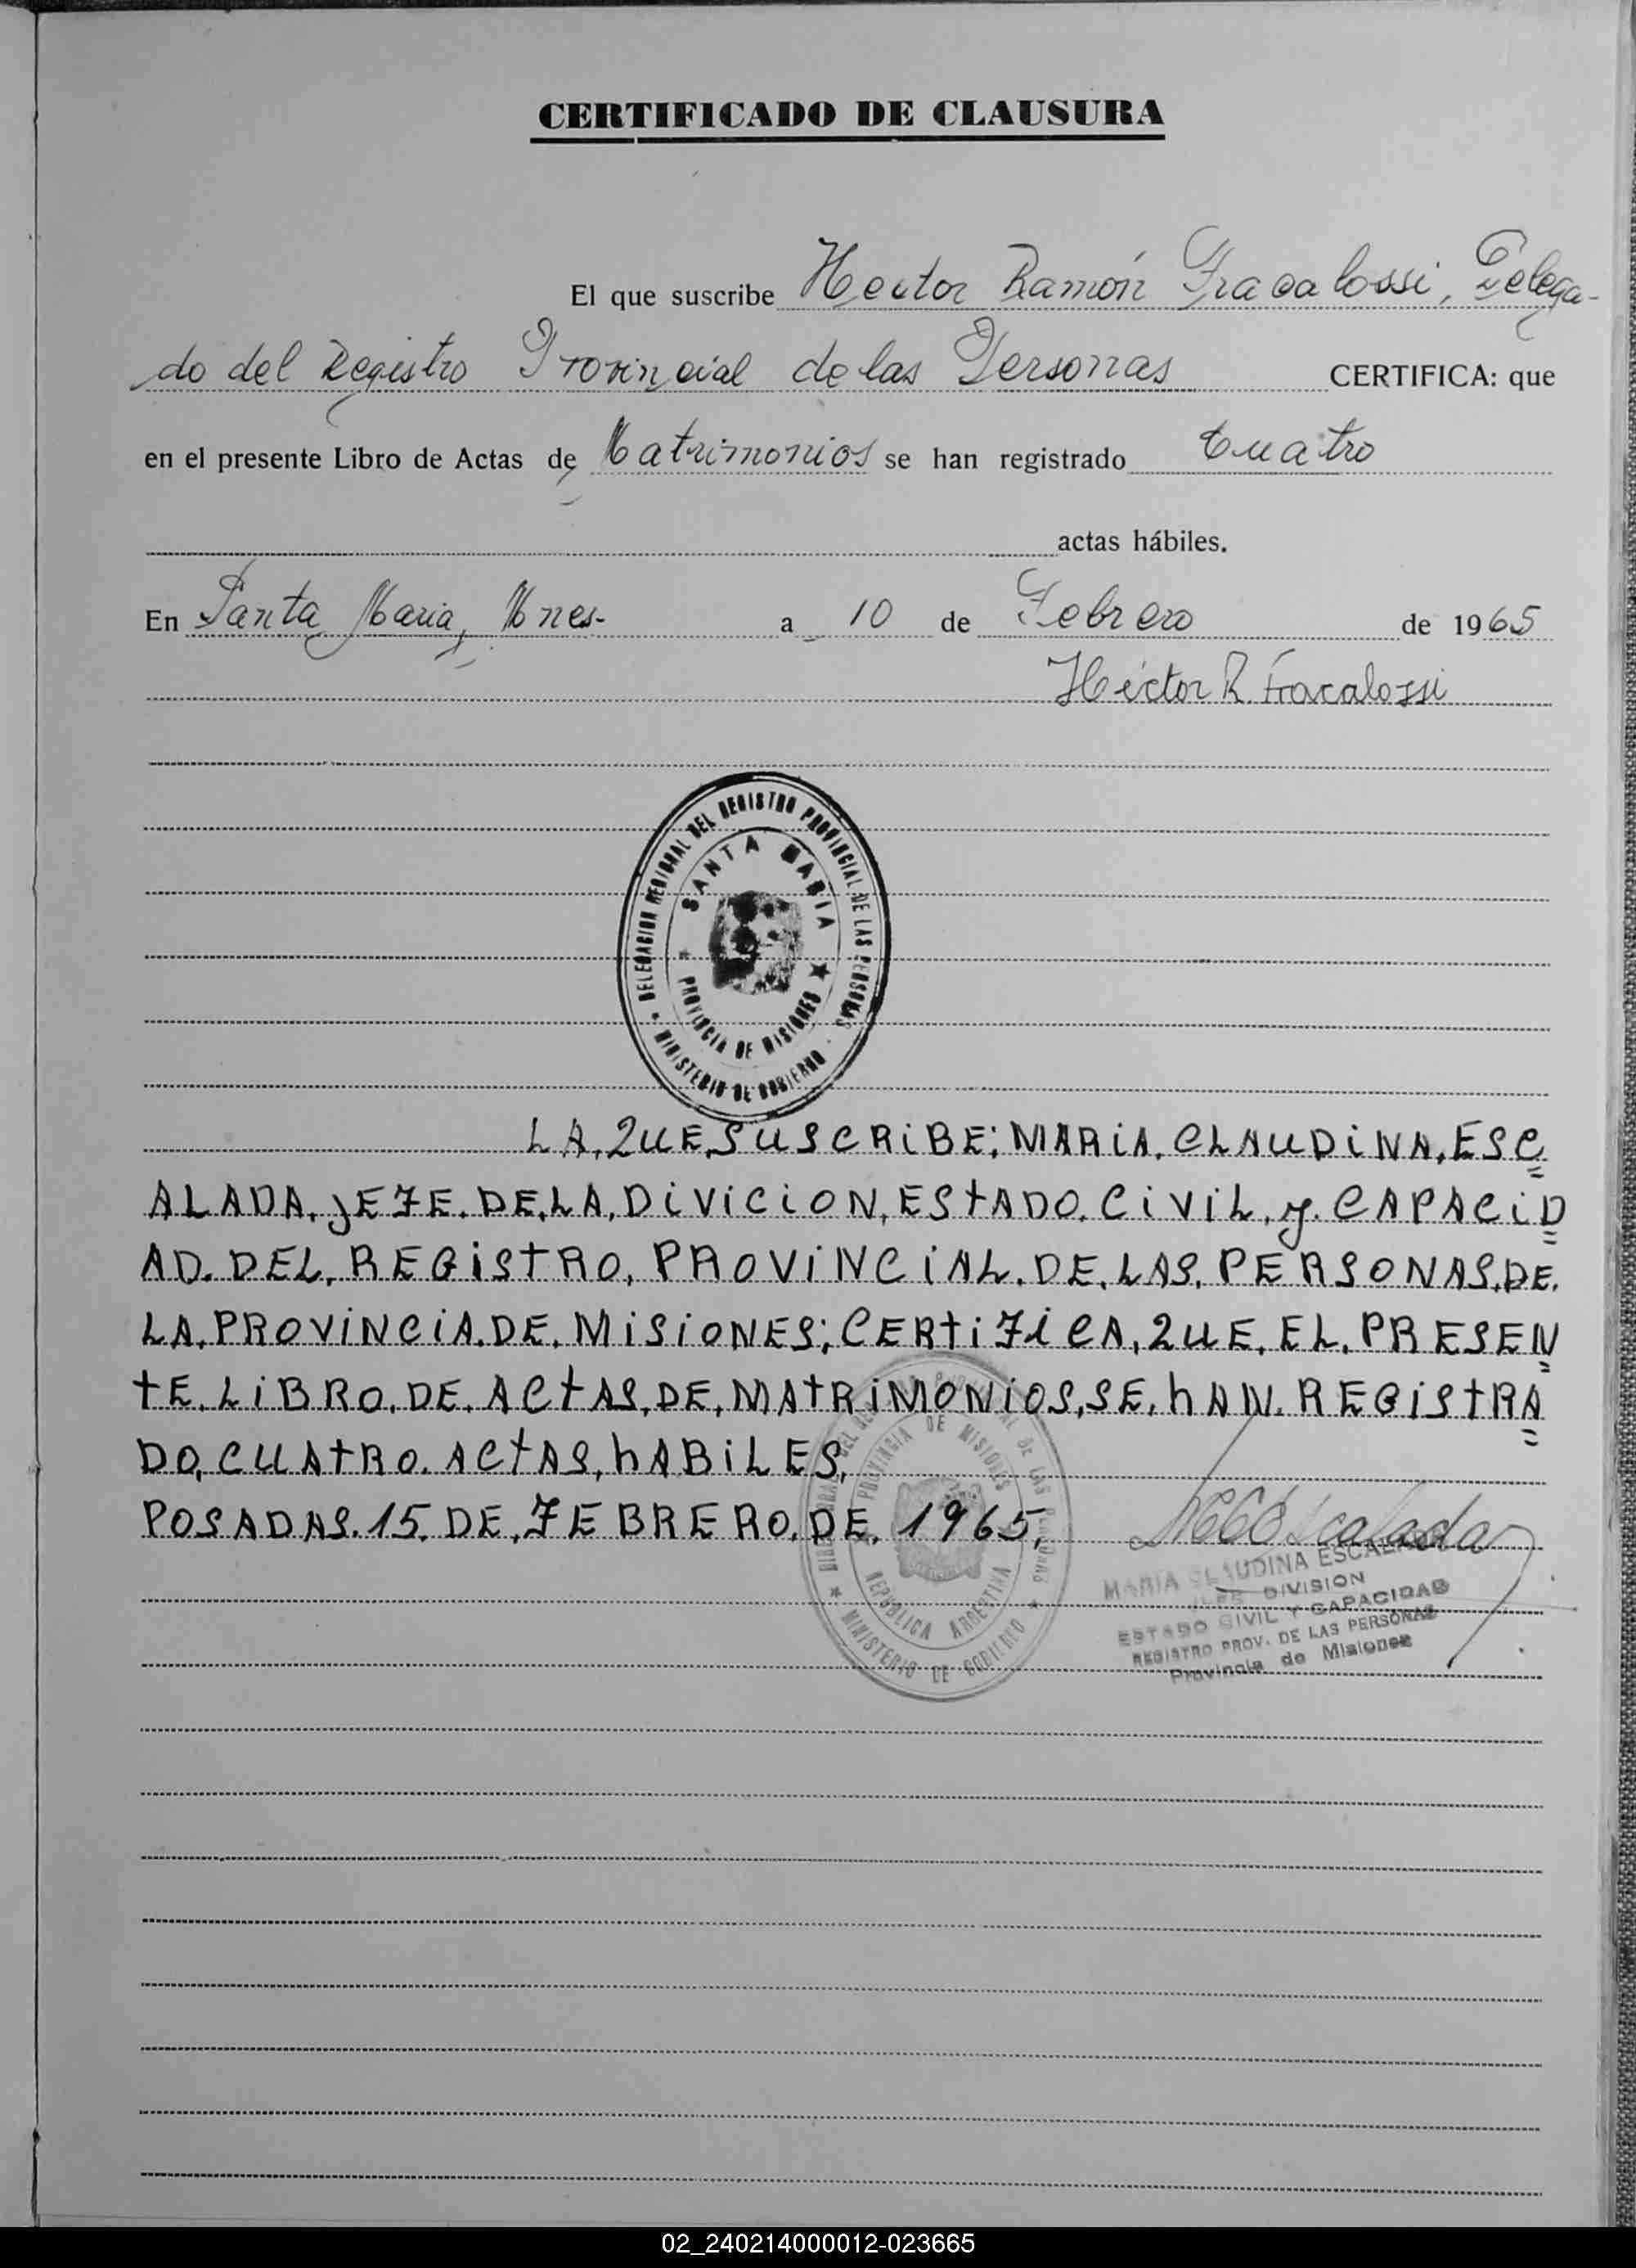 CERTIFICADO DE CLAUSURA
El que suscribe Hector Ramón Fracalossi, Delega-
do del Registro Provincial de las Personas CERTIFICA: que
en el presente Libro de Actas de Matrimonios se han registrado Cuatro
actas hábiles.
En Santa Maria, Mnes- a 10 de Febrero de 1965
Héctor R. Fracalossi
DELEGACION REGIONAL DEL REGISTRO PROVINCIAL DE LAS PERSONAS
SANTA MARIA
PROVINCIA DE MISIONES
MINISTERIO DE GOBIERNO
LA, QUE, SUSCRiBE; MARiA. CLAUDiNA, ESC
ALADA. jEFE. DE. LA, DiViCiON, EStADO. CiViL, y. CAPACiD
AD. DEL, REGiStRO, PROViNCiAL. DE, LAS, PERSONAS, DE.
LA, PROViNCiA. DE. MiSiONES; CERtiFiCA, QUE, EL. PRESEN
tE. LiBRO. DE. ACtAS, DE, MAtRiMONiOS, SE, hAN. REGiStRA
DO, CUAtRO. ACtAS, hABiLES,
POSADAS. 15. DE, FEBRERO. DE. 1965,
MCEscalada
PROVINCIA DE MISIONES
REPUBLICA ARGENTINA
MINISTERIO DE GOBIERNO
MARIA CLAUDINA ESCALADA
JEFE DIVISION
ESTADO CIVIL Y CAPACIDAD
REGISTRO PROV. DE LAS PERSONAS
Provincia de Misiones
02_240214000012-023665